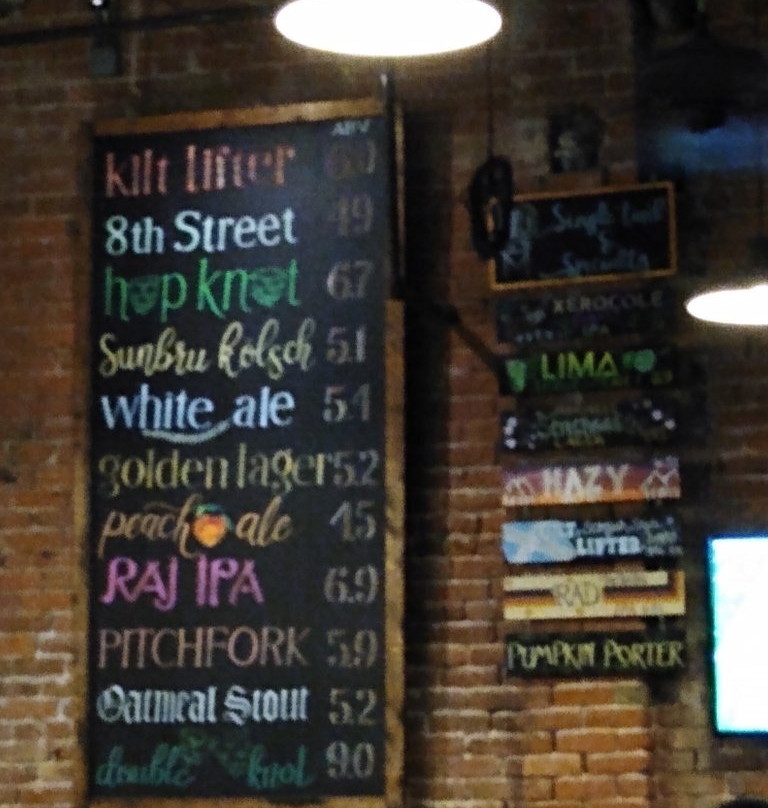 ABV
kilt lifter 6.0
8th Street 4.9
hop knot 6.7
Sunbru kölsch 5.1
white ale 5.1
golden lager 5.2
peach ale 4.5
RAJ IPA 6.9
PITCHFORK 5.9
Oatmeal Stout 5.2
double knot 9.0
Single
&
XEROCOLE
IPA
LIMA
HAZY
LIFTER
RAD
PUMPKIN PORTER